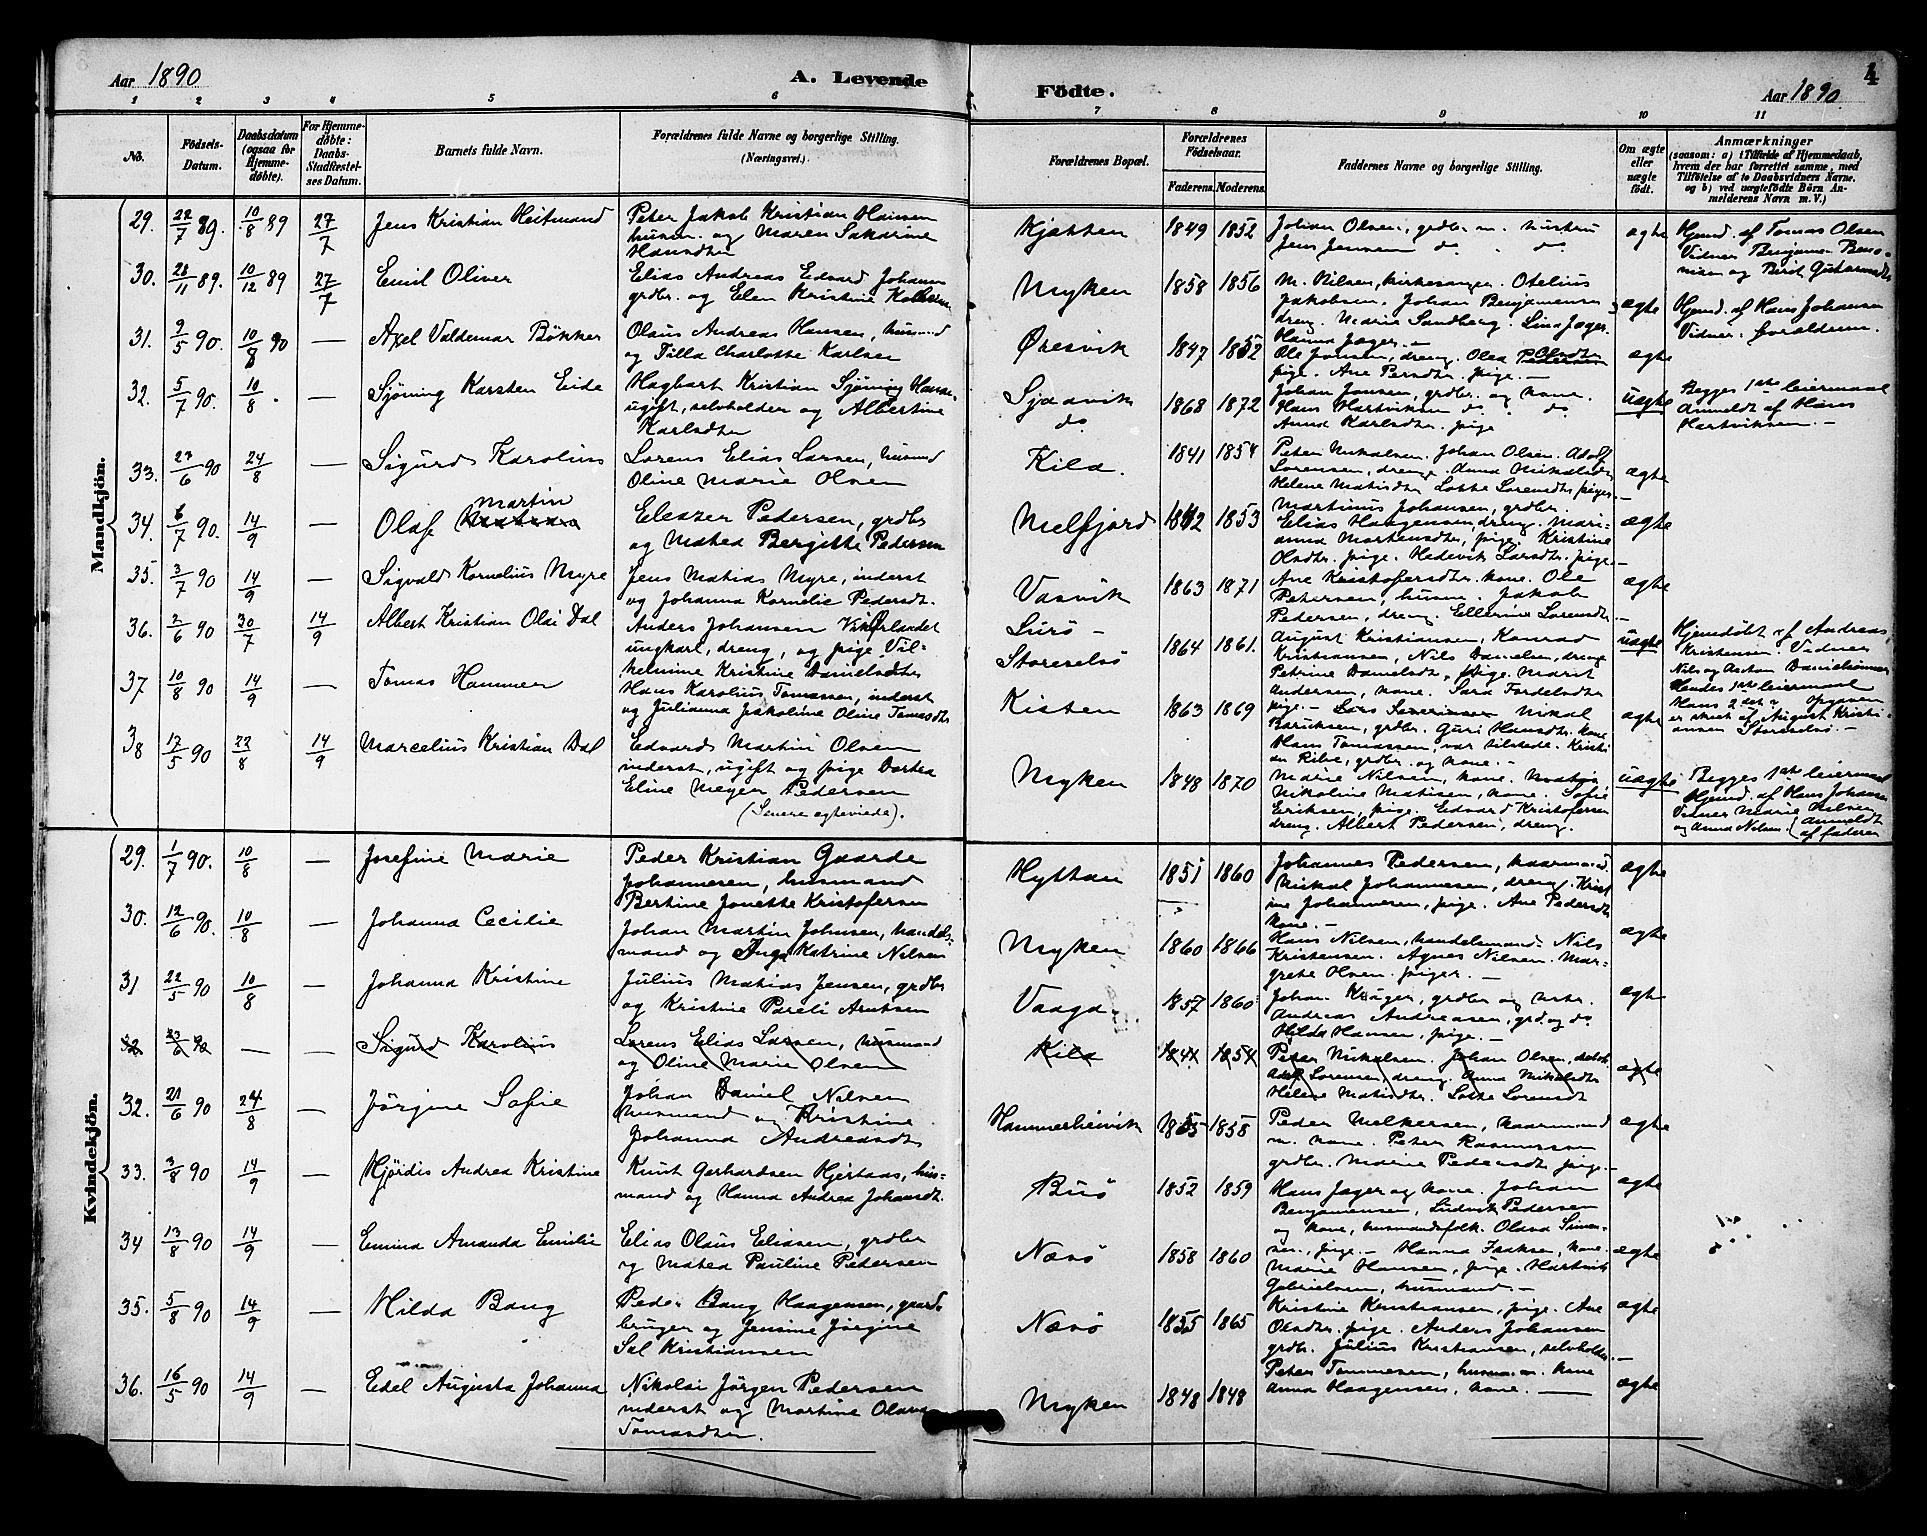 Aar 1890 A. Levende Fødte. Aar 1890 4
1 2 3 4 5 6 7 8 9 10 11
No.
Fødsels-Datum.
Daabsdatum (ogsaa for Hjemme-døbte).
For Hjemme-døbte: Daabs-Stadfæstel-ses Datum.
Barnets fulde Navn.
Forældrenes fulde Navne og borgerlige Stilling.
(Næringsvei.)
Forældrenes Bopæl.
Forældrenes Fødselsaar.
Faderens. Moderens.
Faddernes Navne og borgerlige Stilling.
Om ægte eller uægte født.
Anmærkninger
(saasom: a) i Tilfælde af Hjemmedaab,
hvem der har forrettet samme, med
Tilføielse af to Daabsvidners Navne.
og b) ved uægtefødte Børn An-
melderens Navn m. V.)
Mandkjøn.
29. 22/7 89. 10/8 89 27/7 Jens Kristian Heitmand
Peter Jakob Kristian Hansen
husm. og Maren Sakarine
Hansdter
Kjøtten 1849 1852
Johan Olsen, grdbr. m. hustru
Jens Jensen do do
ægte
Hjmd. af Tomas Olsen
Vidner Benjamin
30. 28/11 89. 10/12 89 27/7 Emil Oliver
Elias Andreas Edvard Johansen
grdbr. og Elen Kristine
Myken 1858 1856
M. Nilsen, kirkesanger. Otelius
Jakobsen. Johan Benjaminsen
dreng. Marie Sandberg. Lina Jæger.
Hanna Jæger. —
ægte
Hjmd. af Hans Johansen
Vidner. forældrene.
31. 9/5 90. 10/8 90 — Axel Valdemar Bøkker
Olaus Andreas Hansen, husmd
og Tilla Charlotte Karlsen
Øresvik 1847 1852
Ole Jonsen, dreng. Olea Olsdtr
pige. Ane Persdtr. pige. —
ægte
32. 5/7 90. 10/8 . — Sjøning Karsten Eide
Hagbart Kristian Sjøning
ugift, selvholder og Albertine
Karlsdter
Sjaavik 1868 1872
do
Johan Jonsen, grdbr. og kone.
Hans Hartviksen do do
Anna Karlsdtr. pige
uægte
Begges 1ste leiermaal
Anmeldt af Hans
Hartviksen. —
33. 27/6 90 24/8 — Sigurd Karolius
Lorens Elias Larsen, husmd
Oline Marie Olsen
Kila. 1841 1854
Peter Nikolsen. Johan Olsen. Adolf
Lorensen, dreng. Anna Nikolsdtr
Helene Matisdtr Lotte Lorensdtr piger. —
ægte
34. 6/7 90. 14/9 — Olaf Martin
Eleazer Pedersen, grdbr
og Matea Bergitte Pedersen
Melfjord 1842 1853
Martinus Johansen, grdbr.
Elias Haagensen, dreng. Mari-
anna Mortensdtr, pige. Kristine
Olsdtr. pige. Hedevik Larsdtr. pige. —
ægte
35. 3/7 90 14/9 — Sigvald Kornelius Myre
Jens Matias Myre, inderst
og Johanna Kornelie Pedersdt.
Vasvik 1863 1871
Ane Kristofersdtr. kone. Ole
Petersen, husm. Jakob
Pedersen, dreng. Ellenine Lorensdt. —
ægte
36. 2/6 90 30/7 14/9 Albert Kristian Olai Dal
Anders Johansen
ungkarl, dreng, og pige Vil-
helmine Kristine Danielsdter
Lurø — 1864 1861.
Storeselsø
August Kristiansen, Konrad
Kristiansen, Nils Danielsen, dreng
Petrine Danielsdt, pige. Marit
Andersen, kone. Sara Fordelsdtr
pige. —
uægte
Hjemdøbt af Andreas
Kristensen. Vidner
Nils og Anton Danielsønner
Hendes 1ste leiermaal
Hans 2det. Opgaven
er skeet af August Kristi-
ansen Storeselsø. —
37 10/8 90 14/9 — Tomas Hammer
Hans Karolius Tomassen, inderst
og Julianna Jakoline Oline Tomasdtr
Kisten 1863 1869
Nikol
Baruksen, grdbr. Guri Hansdtr. kone
Hans Tomassen, var tilstede. Kristi
an Ribe, grdbr. og kone. —
ægte
38 17/5 90 22/8 14/9 Marcelius Kristian Dal
Edvard Martin Olsen
inderst, ugift og pige Dortea
Eline Meyer Pedersen
(Senere egteviede).
Myken 1848 1870
Marie Nilsen, kone. Matis
Nikoline Matisen, kone. Sofie
Eriksen, pige. Edvard Kristofersen
dreng. Albert Pedersen, dreng.
uægte
Begges 1ste leiermaal
Hjmd. af Hans Johansen
Vidner Marie Nilsen
og Anna Nilsen (Anmeldt
af faderen
Kvindekjøn.
29. 1/7 90. 10/8 — Josefine Marie
Peder Kristian Gaarde
Johannesen, husmand
Bertine Jonette Kristofersen
Hyttan 1851 1860
Johannes Pedersen, kaarmand
Nikol Johannesen, dreng. Krist
ine Johannesen, pige. Ane Pedersdtr
kone. —
ægte
30. 12/6 90. 10/8 — Johanna Cecilie
Johan Martin Johnsen, handels-
mand og Inga Katrine Nilsen
Myken 1860 1866
Hans Nilsen, handelsmand. Nils
Kristensen. Agnes Nilsen. Mar-
grete Olsen. piger. —
ægte
31 22/5 90 10/8 — Johanna Kristine
Julius Matias Jensen, grdbr
og Kristine Pareli Arntsen
Vaaga 1857 1860
Johan Krüger, grdbr og hstr.
Andreas Andreasen, grd. og do
Hilda Hansen, pige. —
ægte
32 23/6 90 — — Sigurd Karolius
Lorens Elias Larsen, husmand
og Oline Marie Olsen
Kila 1841 1854
Peter Nikolsen. Johan Olsen,
Adolf Lorensen, dreng. Anna Nikolsdtr
Helene Matisdtr. Lotte Lorensdt
ægte
32. 21/6 90 24/8 — Jørgine Sofie
Johan Daniel Nilsen
husmand og Kristine
Johanna Andreasdt
Hammerheivik 1855 1858
Peder Melkersen, kaarmand
m. kone. Peter Rasmussen
grdbr. Marie Pedersdt pige. —
ægte
33. 3/8 90 14/9 — Hjørdis Andrea Kristine
Knut Gerhardsen Hjertaas, hus-
mand og Hanna Andrea Johansdt.
Buø 1852 1859
Hans Jæger og kone. Johan
Benjaminsen, Ludvik Pedersen
og kone, husmandsfolk. Olava Simon-
sen, pige. —
ægte
34 13/8 90 14/9 — Emma Amanda Emilie
Elias Olaus Eliasen, grdbr
og Matea Pauline Petersen
Nævø 1858 1860
Hanna Isaksen, kone.
Marie Hansen, pige. Hartvik
Gabrielsen, husmand. —
ægte
35. 5/8 90 14/9 — Hilda Bang
Peder Bang Haagensen, gaard-
bruger og Jensine Jørgine
Sal Kristiansen
Nævø 1855 1865
Kristine Kristiansen, pige. Ane
Olsdtr. pige. Anders Johansen
grdbr. Julius Kristiansen, selvholder. —
ægte
36. 16/5 90 14/9 — Edel Augusta Johanna
Nikolai Jørgen Pedersen
inderst og Martine Olava
Tomasdtr.
Myken 1848 1848
Peter Tommesen, husm. m. kone
Anna Haagensen, kone. —
ægte